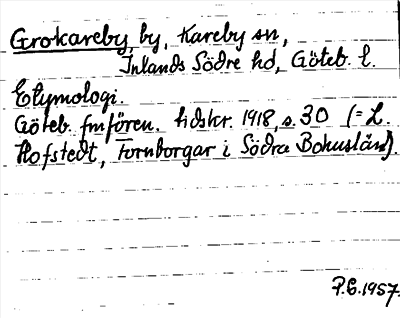 Grokareby, by, Kareby sn,
Inlands Södre hd, Göteb. l.
Etymologi.
Göteb. fmfören. tidskr. 1918, s. 30 (= L.
Hofstedt, Fornborgar i Södra Bohuslän).
P.E. 1957.